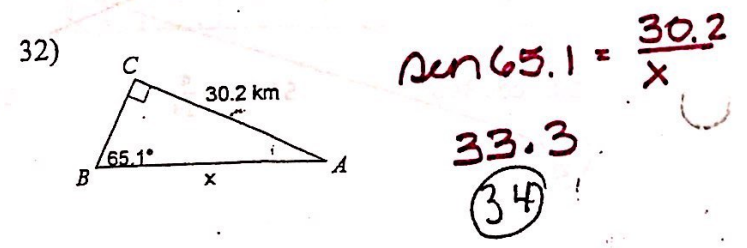 32)
C
30.2 km
65.1°
B
x
A
sen 65.1 = 30.2
x
33.3
34